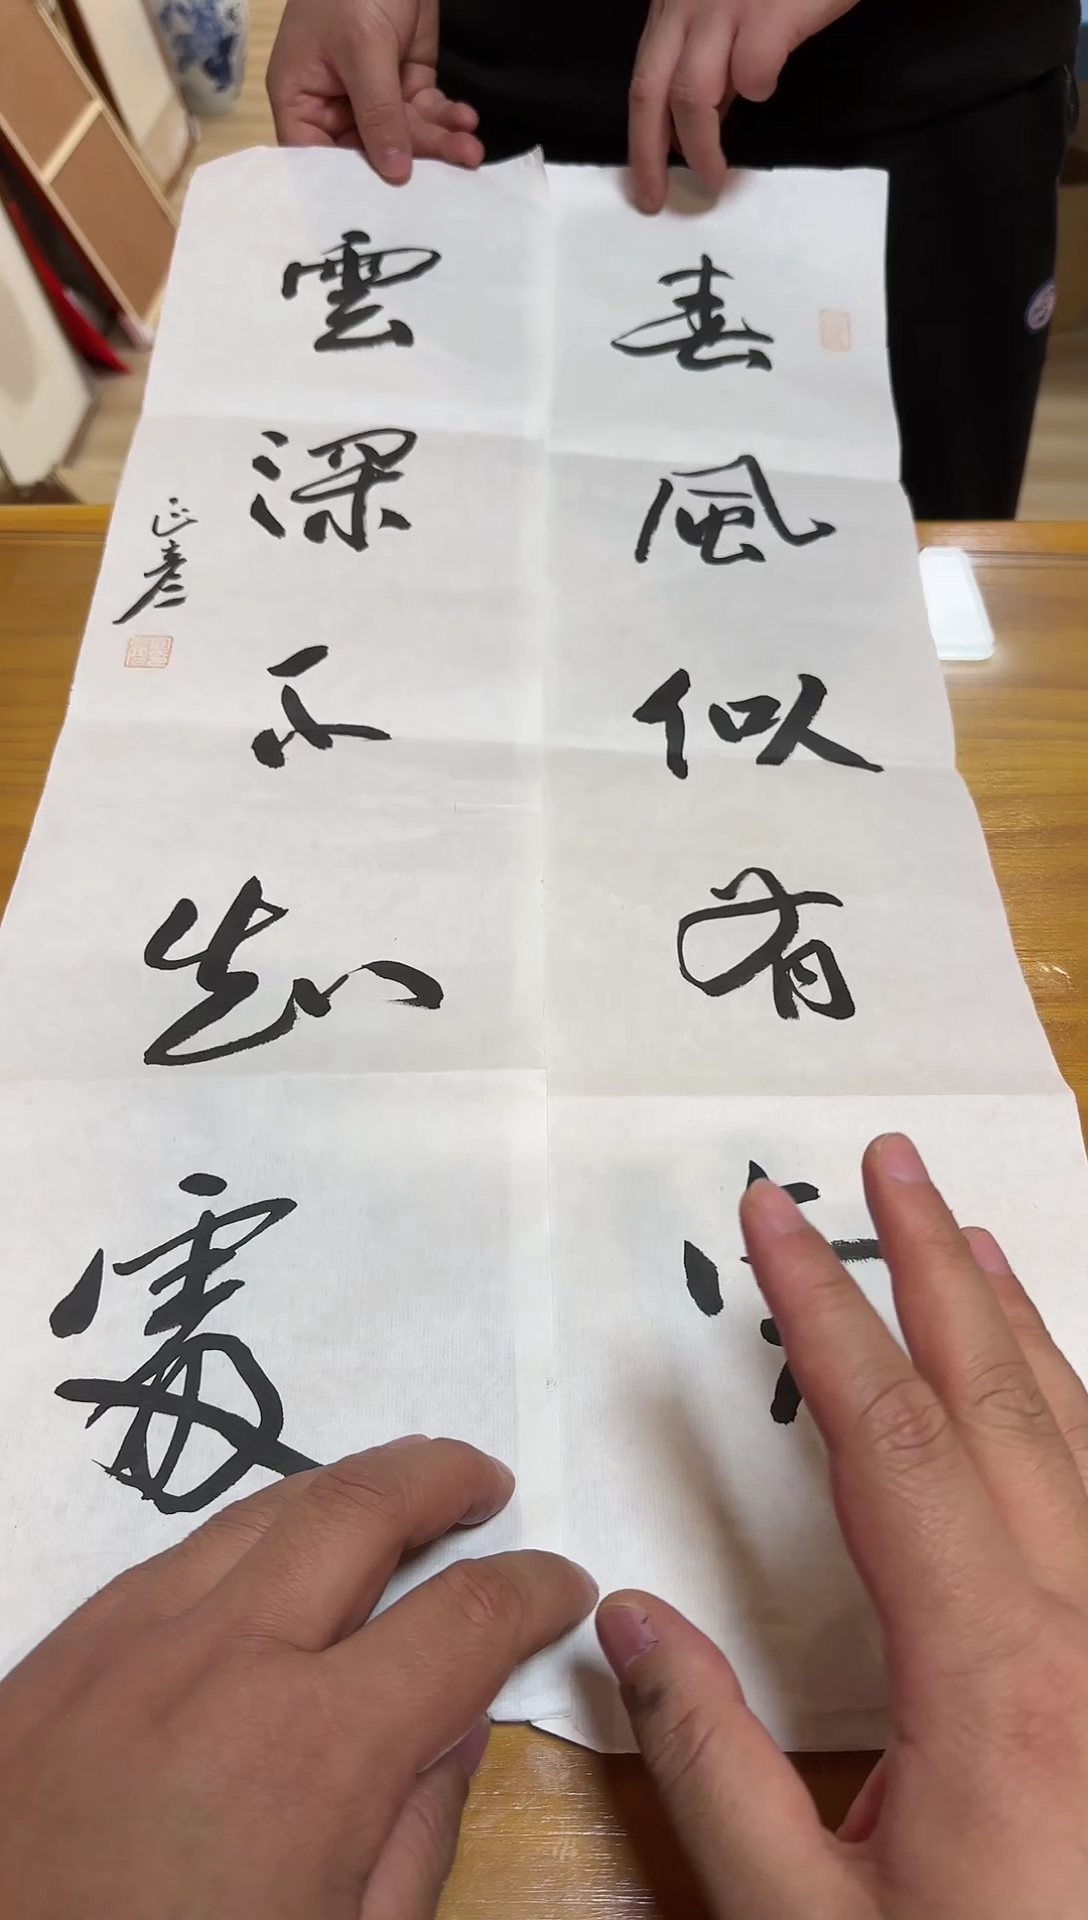 春風似有
雲深不知處
正彥